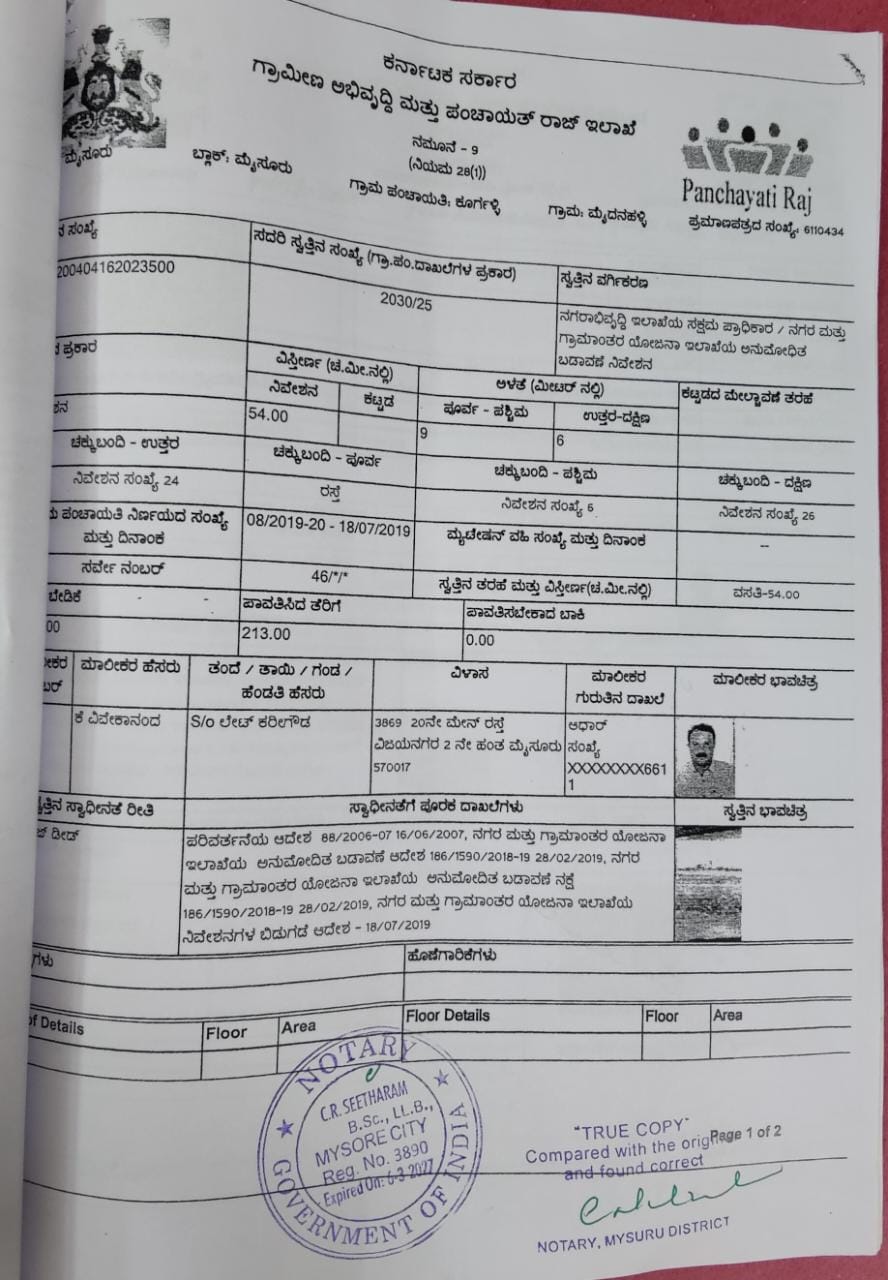 ಕರ್ನಾಟಕ ಸರ್ಕಾರ
ಗ್ರಾಮೀಣ ಅಭಿವೃದ್ಧಿ ಮತ್ತು ಪಂಚಾಯತ್ ರಾಜ್ ಇಲಾಖೆ
ನಮೂನೆ - 9
(ನಿಯಮ 28(1))
Panchayati Raj
ಮೈಸೂರು ಬ್ಲಾಕ್: ಮೈಸೂರು ಗ್ರಾಮ ಪಂಚಾಯತಿ: ಕೂರ್ಗಳ್ಳಿ ಗ್ರಾಮ: ಮೈದನಹಳ್ಳಿ ಪ್ರಮಾಣಪತ್ರದ ಸಂಖ್ಯೆ: 6110434
ನ ಸಂಖ್ಯೆ ಸದರಿ ಸ್ವತ್ತಿನ ಸಂಖ್ಯೆ (ಗ್ರಾ.ಪಂ.ದಾಖಲೆಗಳ ಪ್ರಕಾರ) ಸ್ವತ್ತಿನ ವರ್ಗಿಕರಣ
200404162023500 2030/25 ನಗರಾಭಿವೃದ್ಧಿ ಇಲಾಖೆಯ ಸಕ್ಷಮ ಪ್ರಾಧಿಕಾರ / ನಗರ ಮತ್ತು
ಗ್ರಾಮಾಂತರ ಯೋಜನಾ ಇಲಾಖೆಯ ಅನುಮೋಧಿತ
ಬಡಾವಣೆ ನಿವೇಶನ
ಪ್ರಕಾರ ವಿಸ್ತೀರ್ಣ (ಚ.ಮೀ.ನಲ್ಲಿ) ಅಳತೆ (ಮೀಟರ್ ನಲ್ಲಿ) ಕಟ್ಟಡದ ಮೇಲ್ಚಾವಣೆ ತರಹೆ
ನಿವೇಶನ ಕಟ್ಟಡ ಪೂರ್ವ - ಪಶ್ಚಿಮ ಉತ್ತರ-ದಕ್ಷಿಣ
ಶನ 54.00 9 6
ಚಕ್ಕುಬಂದಿ - ಉತ್ತರ ಚಕ್ಕುಬಂದಿ - ಪೂರ್ವ ಚಕ್ಕುಬಂದಿ - ಪಶ್ಚಿಮ ಚಕ್ಕುಬಂದಿ - ದಕ್ಷಿಣ
ನಿವೇಶನ ಸಂಖ್ಯೆ 24 ರಸ್ತೆ ನಿವೇಶನ ಸಂಖ್ಯೆ 6 ನಿವೇಶನ ಸಂಖ್ಯೆ 26
ಪಂಚಾಯತಿ ನಿರ್ಣಯದ ಸಂಖ್ಯೆ
ಮತ್ತು ದಿನಾಂಕ 08/2019-20 - 18/07/2019 ಮ್ಯುಟೇಷನ್ ವಹಿ ಸಂಖ್ಯೆ ಮತ್ತು ದಿನಾಂಕ --
ಸರ್ವೇ ನಂಬರ್ 46/*/* ಸ್ವತ್ತಿನ ತರಹೆ ಮತ್ತು ವಿಸ್ತೀರ್ಣ(ಚ.ಮೀ.ನಲ್ಲಿ) ವಸತಿ-54.00
ಬೇಡಿಕೆ ಪಾವತಿಸಿದ ತೆರಿಗೆ ಪಾವತಿಸಬೇಕಾದ ಬಾಕಿ
00 213.00 0.00
ೀಕರ ಮಾಲೀಕರ ಹೆಸರು ತಂದೆ / ತಾಯಿ / ಗಂಡ / ವಿಳಾಸ ಮಾಲೀಕರ ಮಾಲೀಕರ ಭಾವಚಿತ್ರ
ಬರ್ ಹೆಂಡತಿ ಹೆಸರು ಗುರುತಿನ ದಾಖಲೆ
ಕೆ ವಿವೇಕಾನಂದ S/o ಲೇಟ್ ಕರಿಗೌಡ 3869 20ನೇ ಮೇನ್ ರಸ್ತೆ ಆಧಾರ್
ವಿಜಯನಗರ 2 ನೇ ಹಂತ ಮೈಸೂರು ಸಂಖ್ಯೆ
570017 XXXXXXXX661
1
ತ್ತಿನ ಸ್ವಾಧೀನತೆ ರೀತಿ ಸ್ವಾಧೀನತೆಗೆ ಪೂರಕ ದಾಖಲೆಗಳು ಸ್ವತ್ತಿನ ಭಾವಚಿತ್ರ
ಡೀಡ್ ಪರಿವರ್ತನೆಯ ಆದೇಶ 88/2006-07 16/06/2007, ನಗರ ಮತ್ತು ಗ್ರಾಮಾಂತರ ಯೋಜನಾ
ಇಲಾಖೆಯ ಅನುಮೋದಿತ ಬಡಾವಣೆ ಆದೇಶ 186/1590/2018-19 28/02/2019, ನಗರ
ಮತ್ತು ಗ್ರಾಮಾಂತರ ಯೋಜನಾ ಇಲಾಖೆಯ ಅನುಮೋದಿತ ಬಡಾವಣೆ ನಕ್ಷೆ
186/1590/2018-19 28/02/2019, ನಗರ ಮತ್ತು ಗ್ರಾಮಾಂತರ ಯೋಜನಾ ಇಲಾಖೆಯ
ನಿವೇಶನಗಳ ಬಿಡುಗಡೆ ಆದೇಶ - 18/07/2019
ಗಳು ಹೊಣೆಗಾರಿಕೆಗಳು
of Details Floor Area Floor Details Floor Area
NOTARY
GOVERNMENT OF INDIA
C.R. SEETHARAM
B.Sc., LL.B.,
MYSORE CITY
Reg. No. 3890
Expired On: 6-3-2027
"TRUE COPY"
Page 1 of 2
Compared with the orig
and found correct
NOTARY, MYSURU DISTRICT